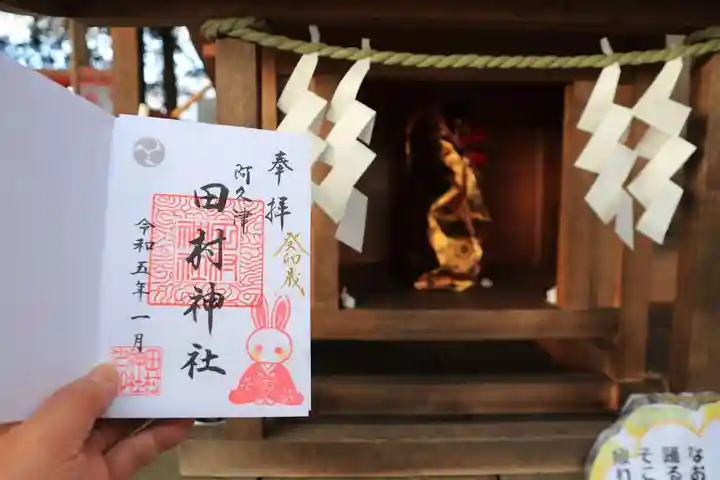 奉拝
癸卯歳
阿久津
田村神社
令和五年一月
なお
踊る
そこ